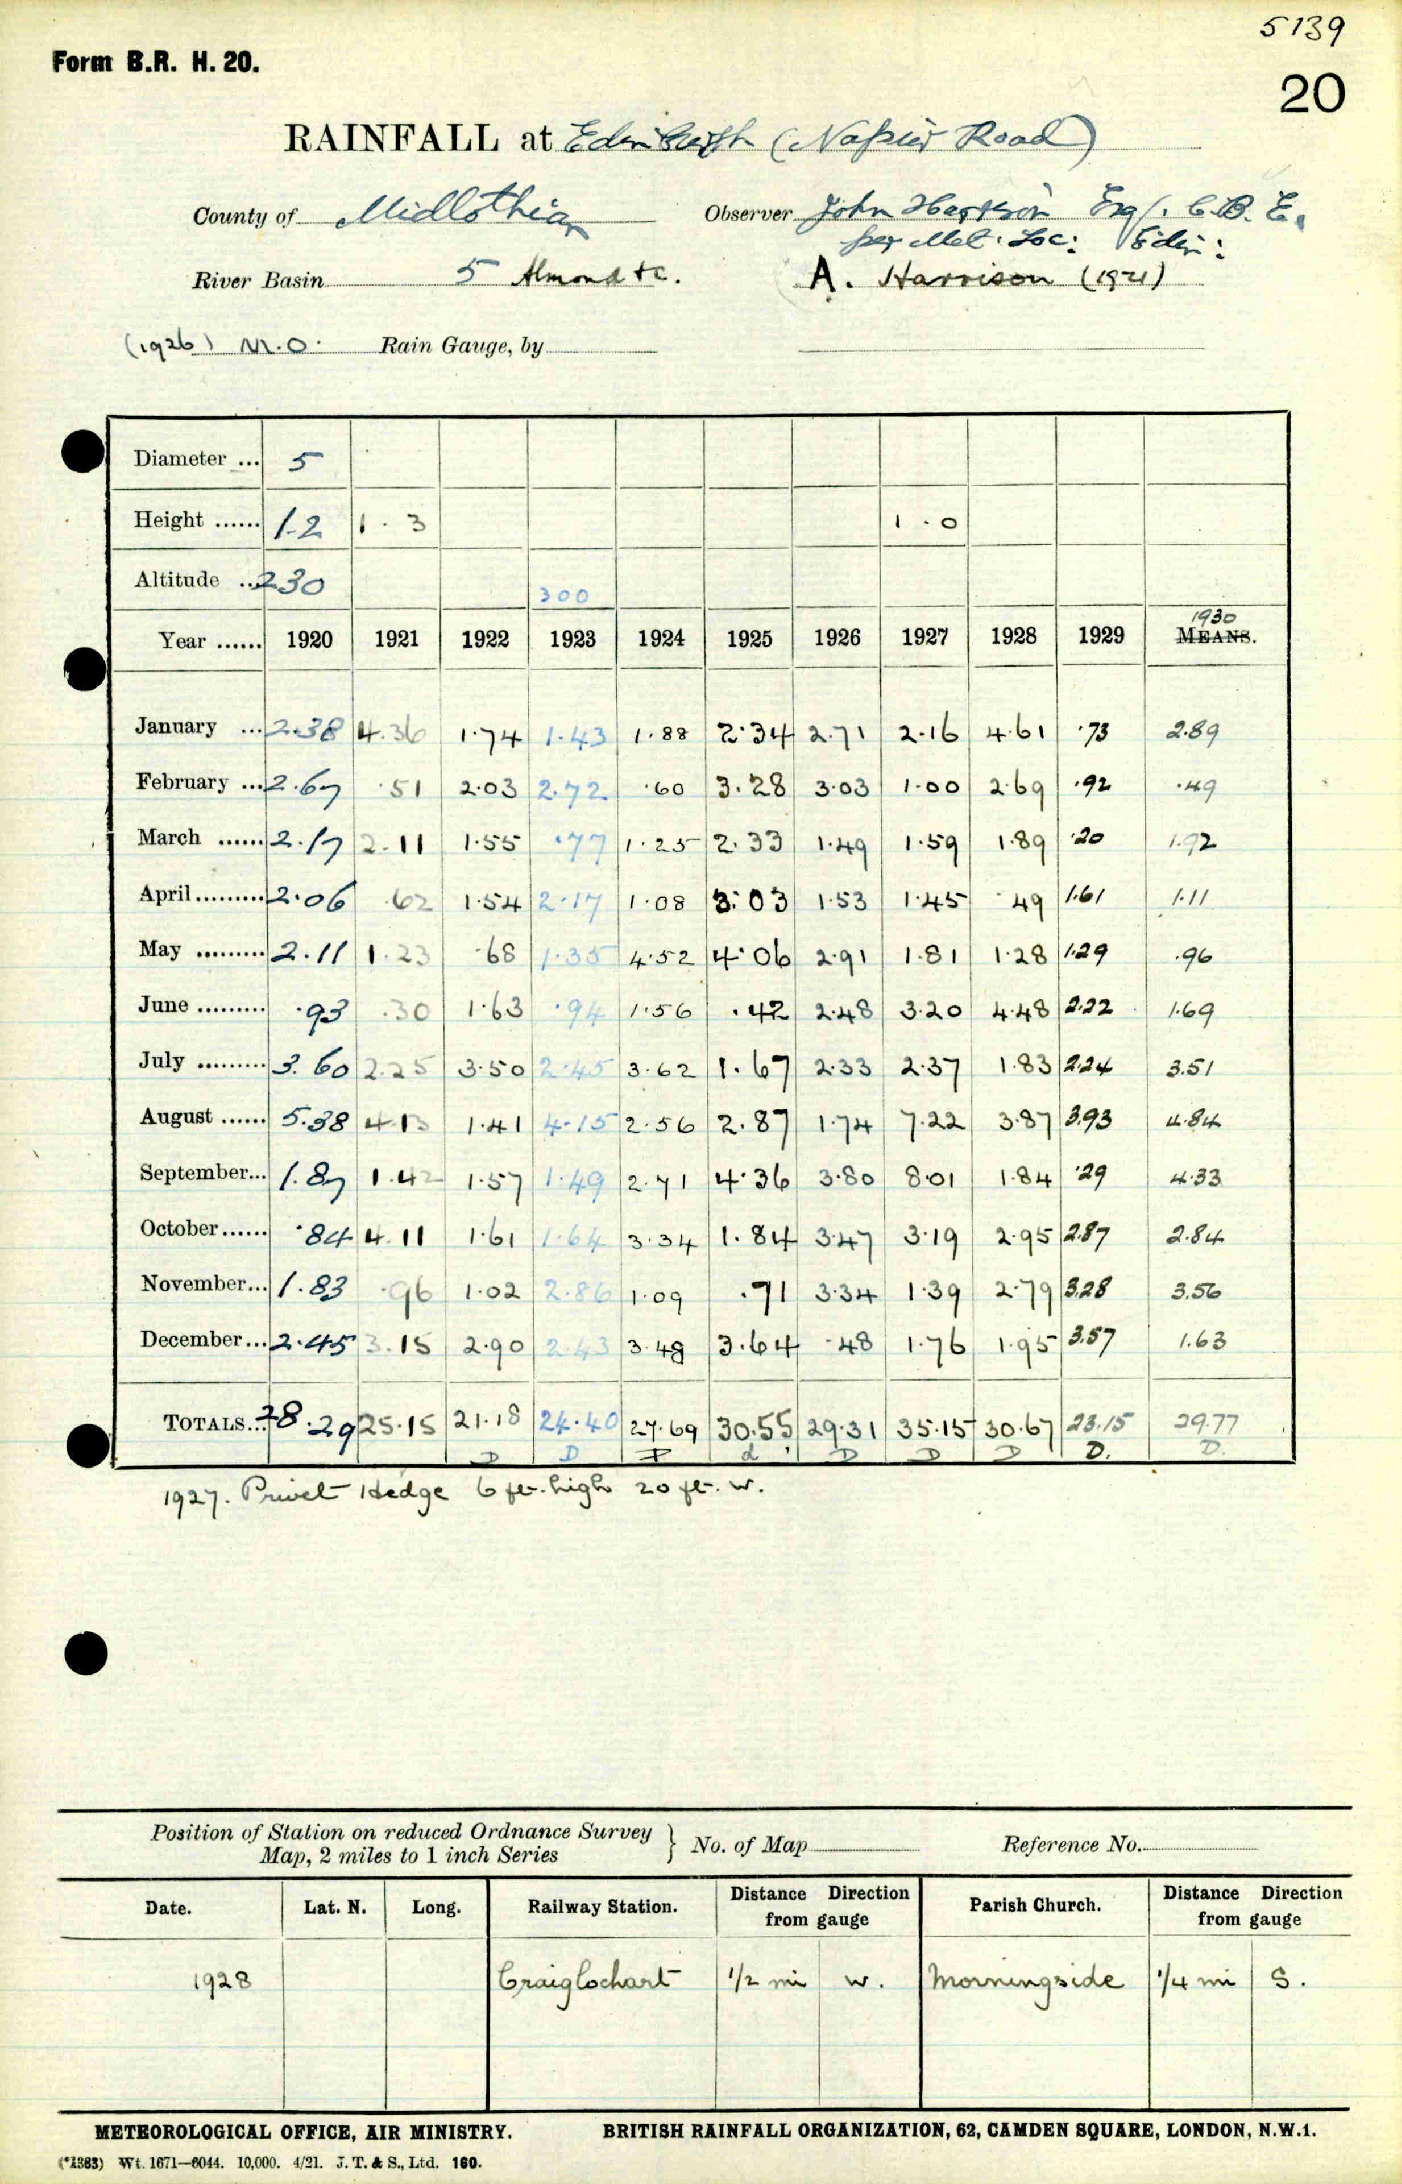 5139
Form B.R. H. 20.
20
RAINFALL at Edinburgh (Napier Road)
County of Midlothian Observer John Harrison Esq. C.B.E.
per Met. Soc: Edin:
River Basin 5 Almond &c. A. Harrison (1921)
(1926) M.O. Rain Gauge, by
Diameter ... 5
Height ...... 1.2 1.3 1.0
Altitude ... 230 300
Year ...... 1920 1921 1922 1923 1924 1925 1926 1927 1928 1929 1930 MEANS.
January ... 2.38 4.36 1.74 1.43 1.88 2.34 2.71 2.16 4.61 .73 2.89
February ... 2.67 .51 2.03 2.72 .60 3.28 3.03 1.00 2.69 .92 .49
March ...... 2.17 2.11 1.55 .77 1.25 2.33 1.49 1.59 1.89 .20 1.92
April ......... 2.06 .62 1.54 2.17 1.08 3.03 1.53 1.45 .49 1.61 1.11
May ......... 2.11 1.23 .68 1.35 4.52 4.06 2.91 1.81 1.28 1.29 .96
June ......... .93 .30 1.63 .94 1.56 .42 2.48 3.20 4.48 2.22 1.69
July ......... 3.60 2.25 3.50 2.45 3.62 1.67 2.33 2.37 1.83 2.24 3.51
August ...... 5.38 4.13 1.41 4.15 2.56 2.87 1.74 7.22 3.87 3.93 4.84
September... 1.87 1.42 1.57 1.49 2.71 4.36 3.80 8.01 1.84 .29 4.33
October ...... .84 4.11 1.61 1.64 3.34 1.84 3.47 3.19 2.95 2.87 2.84
November... 1.83 .96 1.02 2.86 1.09 .71 3.34 1.39 2.79 3.28 3.56
December ... 2.45 3.15 2.90 2.43 3.48 3.64 .48 1.76 1.95 3.57 1.63
TOTALS... 28.29 25.15 21.18 24.40 27.69 30.55 29.31 35.15 30.67 23.15 29.77
D D D d D D D D. D.
1927. Privet Hedge 6 ft. high 20 ft. W.
Position of Station on reduced Ordnance Survey Map, 2 miles to 1 inch Series } No. of Map Reference No.
Date. Lat. N. Long. Railway Station. Distance Direction from gauge Parish Church. Distance Direction from gauge
1928 Craiglochart 1/2 mi W. Morningside 1/4 mi S.
METEOROLOGICAL OFFICE, AIR MINISTRY. BRITISH RAINFALL ORGANIZATION, 62, CAMDEN SQUARE, LONDON, N.W.1.
(*1383) Wt. 1671—6044. 10,000. 4/21. J. T. & S., Ltd. 160.